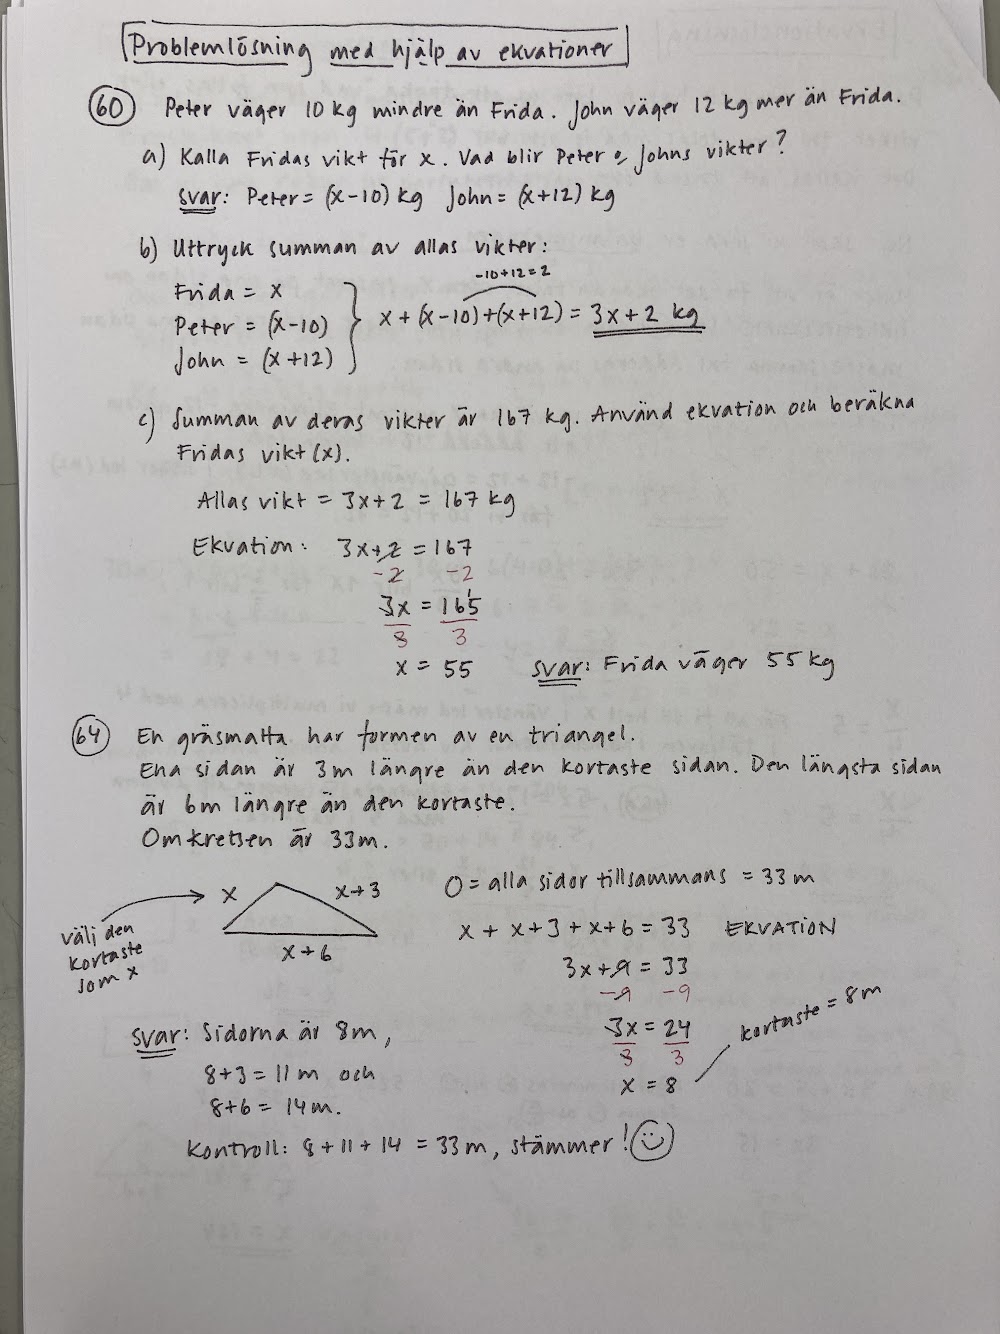 Problemlösning med hjälp av ekvationer
60 Peter väger 10 kg mindre än Frida. John väger 12 kg mer än Frida.
a) Kalla Fridas vikt för x. Vad blir Peter o, Johns vikter?
svar: Peter = (x-10) kg John = (x+12) kg
b) Uttryck summan av allas vikter:
-10+12=2
Frida = x
Peter = (x-10)
John = (x+12)
x + (x-10)+(x+12) = 3x+2 kg
c) Summan av deras vikter är 167 kg. Använd ekvation och beräkna
Fridas vikt (x).
Allas vikt = 3x+2 = 167 kg
Ekvation: 3x+2 = 167
-2 -2
3x = 165
3 3
x = 55 svar: Frida väger 55 kg
64 En gräsmatta har formen av en triangel.
Ena sidan är 3m längre än den kortaste sidan. Den längsta sidan
är 6m längre än den kortaste.
Omkretsen är 33m.
x x+3
x+6
välj den
kortaste
som x
O = alla sidor tillsammans = 33 m
x + x+3 + x+6 = 33 EKVATION
3x+9 = 33
-9 -9
3x = 24
3 3
x = 8
kortaste = 8m
svar: Sidorna är 8m,
8+3 = 11 m och
8+6 = 14m.
Kontroll: 8 + 11 + 14 = 33 m, stämmer!